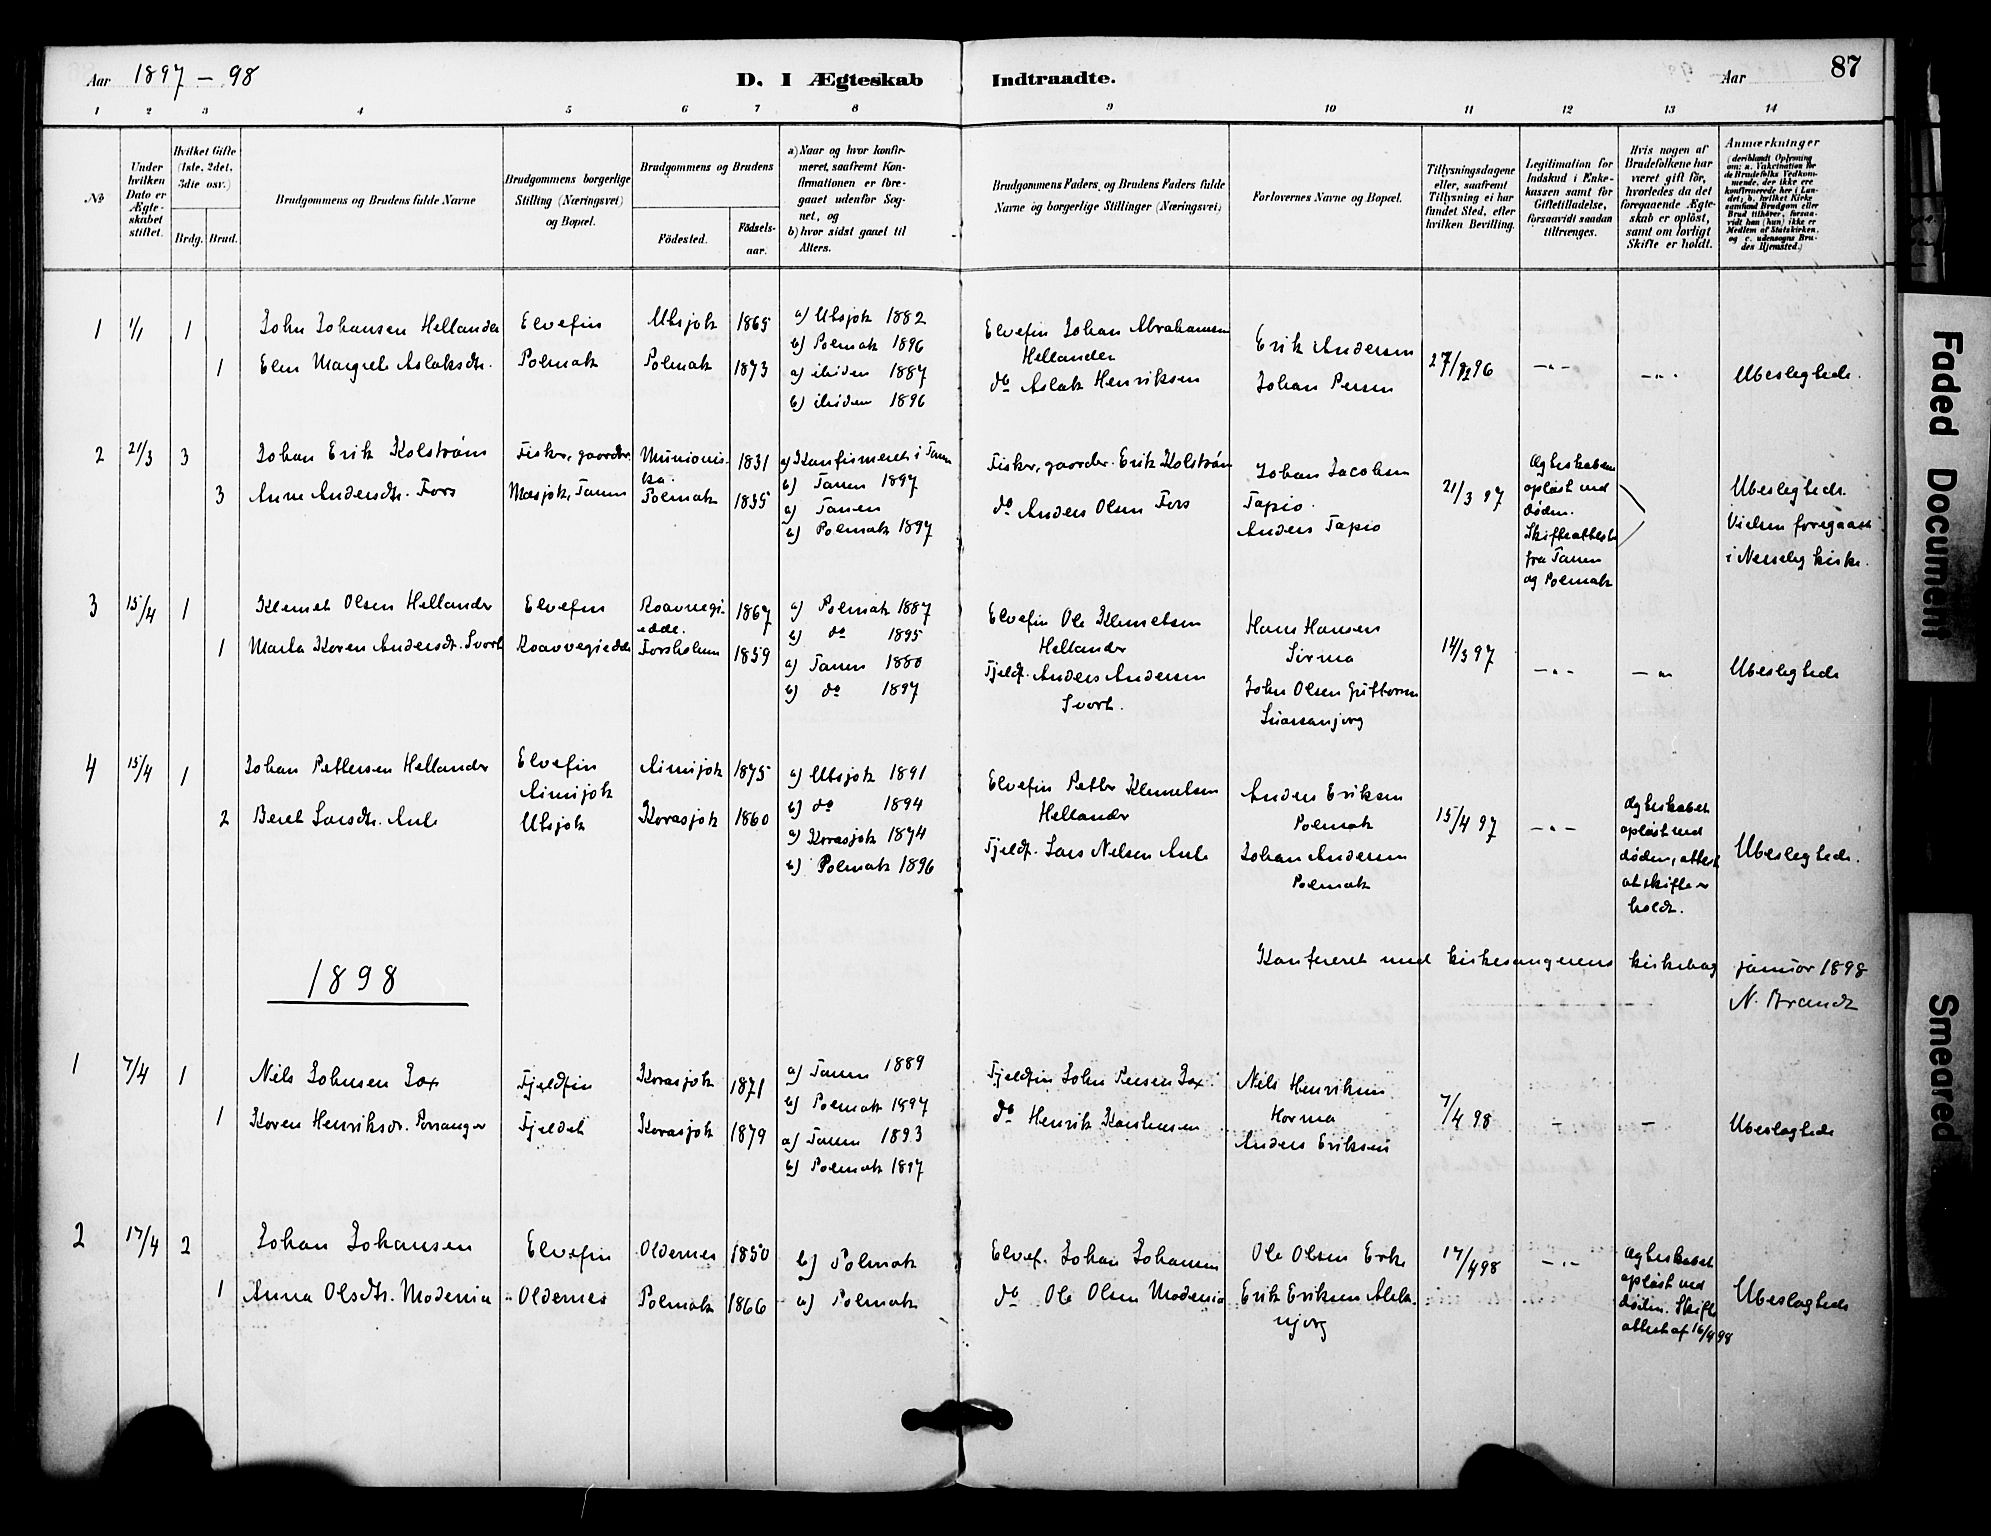 Aar 1897 – 98
D. I Ægteskab Indtraadte.
Aar
87
1 2 3 4 5 6 7 8 9 10 11 12 13 14
No
Under hvilken Dato er Ægteskabet stiftet.
Hvilket Gifte (1ste, 2det, 3die osv.)
Brdg. Brud.
Brudgommens og Brudens fulde Navne
Brudgommens borgerlige Stilling (Næringsvei) og Bopæl.
Brudgommens og Brudens
Fødested. Fødsels-aar.
a) Naar og hvor konfirmeret, saafremt Konfirmationen er foregaaet udenfor Sognet, og
b) hvor sidst gaaet til Alters.
Brudgommens Faders, og Brudens Faders fulde Navne og borgerlige Stillinger (Næringsvei)
Forlovernes Navne og Bopæl.
Tillysningsdagene eller, saafremt Tillysning ei har fundet Sted, efter hvilken Bevilling.
Legitimation for Indskud i Enkekassen samt for Giftetilladelse, forsaavidt saadan tiltrænges.
Hvis nogen af Brudefolkene har været gift før, hvorledes da det foregaaende Ægteskab er opløst, samt om lovligt Skifte er holdt.
Anmærkninger
(deriblandt Oplysning om: a. Vakcination for de Brudefolks Vedkommende, der ikke ere konfirmerede her i Landet; b. hvilket Kirkesamfund Brudgom eller Brud tilhører, forsaavidt han (hun) ikke er Medlem af Statskirken, og c. udensogns Brudes Hjemsted.)
1 1/1 1 John Johansen Hellander Elvefin Utsjok 1865 a) Utsjok 1882
b) Polmak 1896
Elvefin Johan Abrahamsen Hellander
Erik Andersen
27/12 96 -"- -"- Ubeslægtede.
1 Elen Margrete Aslaksdtr. Polmak Polmak 1873 a) ibiden 1887
b) ibidem 1896
do Aslak Henriksen
Johan Persen
2 21/3 3 Johan Erik Kolstrøm Fisker, gaardbr. 1831 a) Konfirmeret i Tanen
b) Tanen 1897
Fisker, gaardbr. Erik Kolstrøm
Johan Jacobsen Tapio.
21/3 97
Ægteskaberne opløst ved døden. Skifteattester fra Tanen og Polmak
Ubeslægtede. Vielsen foregaaet i Nesseby kirke.
3 Anne Andersdtr. Fors Masjok, Tanen Polmak 1835 a) Tanen
b) Polmak 1897
do Anders Olsen Fors
Anders Tapio
3 15/4 1 Klemet Olsen Hellander Elvefin Roavvegiedde. 1867 a) Polmak 1887
b) do 1895
Elvefin Ole Klemetsen Hellander
Hans Hansen Sirma
14/3 97 -"- -"- Ubeslægtede
1 Marta Karen Andersdtr. Svort Roavvegiedde Forsholmen 1859 a) Tanen 1880
b) do 1897
Fjeldf. Anders Andersen Svort.
John Olsen Guttorm
4 15/4 1 Johan Pettersen Hellander Elvefin Aimijok Aimijok 1875 a) Utsjok 1891
b) do 1894
Elvefin Petter Klemetsen Hellander
Anders Eriksen Polmak
15/4 97 -"-
Ægteskabet opløst ved døden, attest at skifte er holdt.
Ubeslægtede.
2 Beret Larsdtr. Anti Utsjok Karasjok 1860 a) Karasjok 1874
b) Polmak 1896
Fjeldf. Lars Nilsen Anti
Johan Andersen Polmak
Konfereret med kirkesangerens kirkebog januar 1898
N. Brandt
1898
1 7/4 1 Nils Johnsen Jox Fjeldfin Karasjok 1871 a) Tanen 1889
b) Polmak 1897
Fjeldfin John Persen Jox.
Nils Henriksen Horma
7/4 98 - - Ubeslægtede
1 Karen Henriksdtr. Porsanger Fjeldet Karasjok 1879 a) Tanen 1893
b) Polmak 1897
do Henrik Karshensen
Anders Eriksen
2 17/4 2 Johan Johansen Elvefin Oldernes 1850 b) Polmak
Elvef. Johan Johansen
Ole Olsen Erke
17/4 98 -"-
Ægteskabet opløst ved døden. Skifteattest af 16/4 98
Ubeslægtede
1 Anna Olsdtr. Modenia Oldernes Polmak 1866 a) Polmak
do Ole Olsen Modenia
Erik Eriksen
Faded Document
Smeared